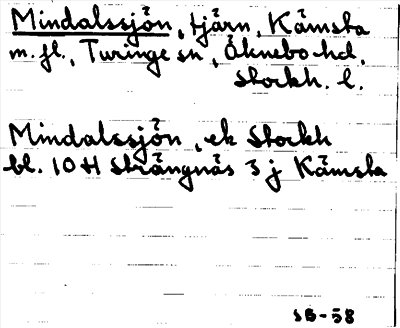 Mindalssjön, tjärn, Kämsta
m.fl., Turinge sn, Åknebo hd,
Stockh. l.
Mindalssjön, ek Stockh
bl. 10 H Strängnäs 3 j Kämsta
SB-58